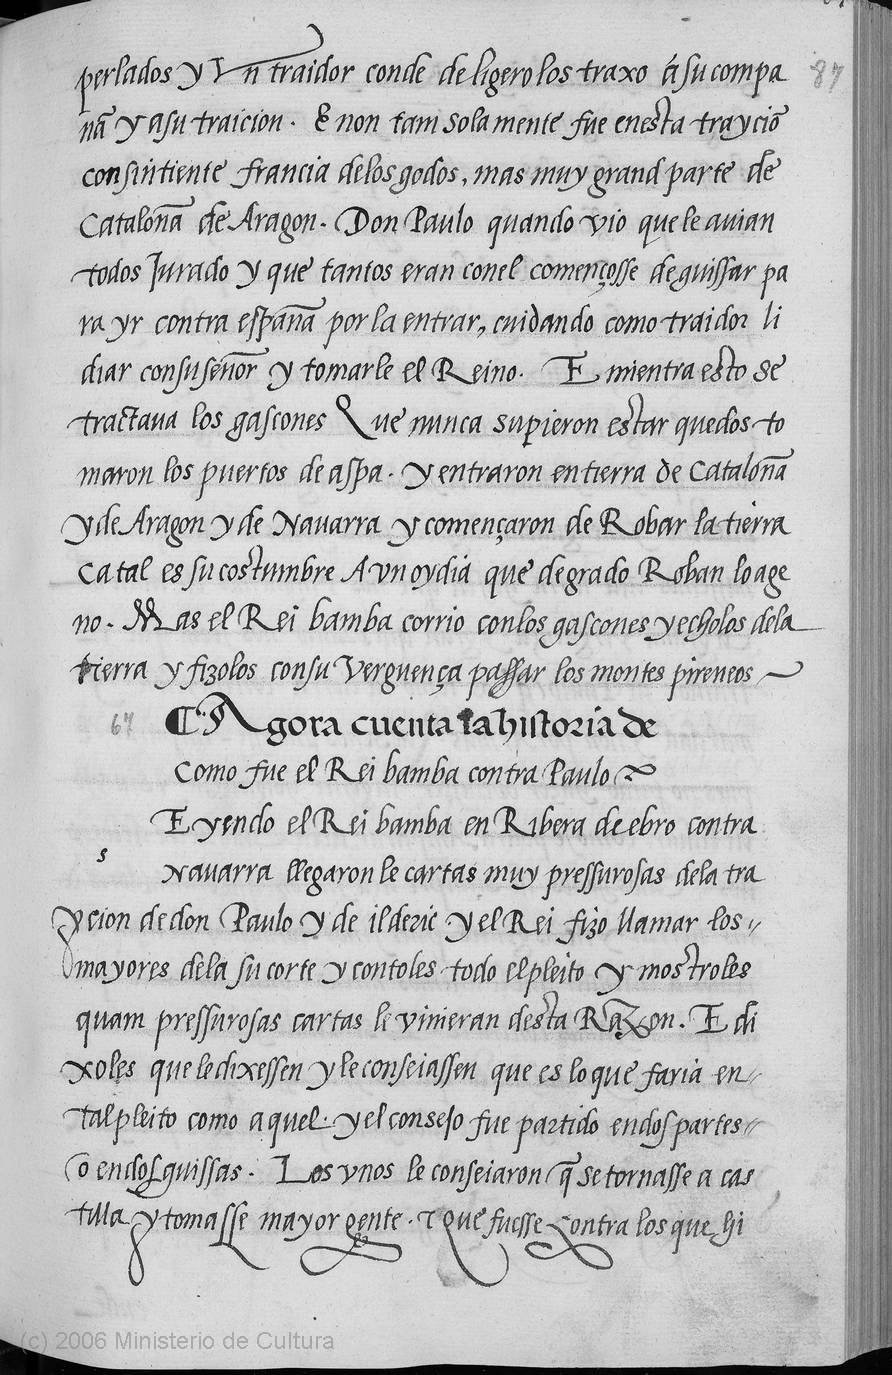 87
perlados y Vn traidor conde de ligero los traxo á su compa
nã y asu traicion. E non tam sola mente fue enesta traycio͂
consintiente francia delos godos, mas muy grand parte de
Catalonã de Aragon. Don Paulo quando vio que le auian
todos Jurado y que tantos eran conel començosse de guissar pa
ra yr contra espanã por la entrar, cuidando como traidor li
diar consu senõr y tomarle el Reino. E mientra esto se
tractaua los gascones Que nunca supieron estar quedos to
maron los puertos de aspa. y entraron en tierra de Catalonã
y de Aragon y de Navarra y començaron de Robar la tierra
Ca tal es su costumbre Avn oy dia que de grado Roban lo age
no. Mas el Rei bamba corrio conlos gascones y echolos dela
tierra y fizolos consu Verguença passar los montes pireneos
67 Agora cuenta la historia de
Como fue el Rei bamba contra Paulo
E yendo el Rei bamba en Ribera de ebro contra
s
Navarra llegaron le cartas muy pressurosas dela tra
ycion de don Paulo y de ilderic y el Rei fizo llamar los
mayores dela su corte y contoles todo el pleito y mostroles
quam pressurosas cartas le vinieran desta Razon. E di
xoles que le dixessen y le conseiassen que es lo que faria en
tal pleito como aquel. y el consejo fue partido en dos partes
o en dos guissas. Los vnos le conseiaron q̃ se tornasse a cas
tilla y tomasse mayor gente. τ que fuesse contra los que hi
(c) 2006 Ministerio de Cultura